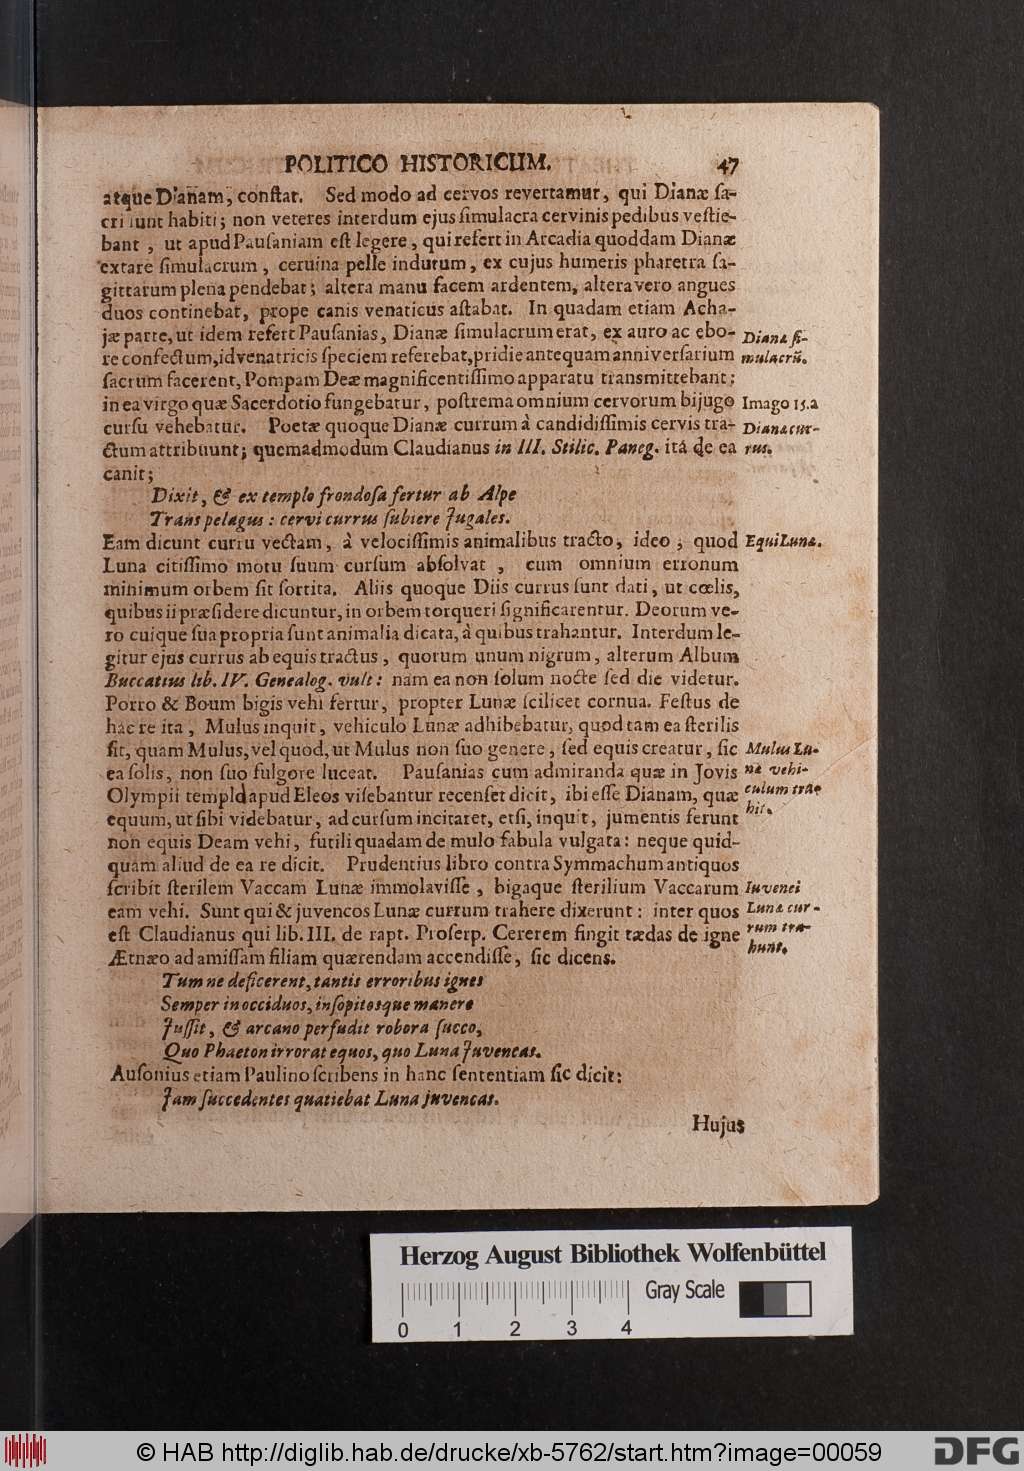 POLITICO HISTORICUM. 47
atque Dianam, conſtat. Sed modo ad cervos revertamur, qui Dianæ ſa-
cri ſunt habiti; non veteres interdum ejus ſimulacra cervinis pedibus veſtie-
bant, ut apud Pauſaniam eſt legere, qui refert in Arcadia quoddam Dianæ
extare ſimulacrum, ceruina pelle indutum, ex cujus humeris pharetra ſa-
gittarum plena pendebat; altera manu facem ardentem, altera vero angues
duos continebat, prope canis venaticus aſtabat. In quadam etiam Acha-
jæ parte, ut idem refert Pauſanias, Dianæ ſimulacrum erat, ex auro ac ebo-
re confectum, id venatricis ſpeciem referebat, pridie antequam anniverſarium
ſacrum facerent, Pompam Deæ magnificentiſſimo apparatu transmittebant;
in ea virgo quæ Sacerdotio fungebatur, poſtrema omnium cervorum bijugo
curſu vehebatur. Poetæ quoque Dianæ currum à candidiſſimis cervis tra-
ctum attribuunt; quemadmodum Claudianus in III. Stilic. Paneg. itá de ea
canit;
Dixit, & ex templo frondoſa fertur ab Alpe
Trans pelagus: cervi currus ſubiere Jugales.
Eam dicunt curru vectam, à velociſſimis animalibus tracto, ideo, quod
Luna citiſſimo motu ſuum curſum abſolvat, cum omnium erronum
minimum orbem ſit ſortita. Aliis quoque Diis currus ſunt dati, ut cœlis,
quibus ii præſidere dicuntur, in orbem torqueri ſignificarentur. Deorum ve-
ro cuique ſua propria ſunt animalia dicata, à quibus trahantur. Interdum le-
gitur ejus currus ab equis tractus, quorum unum nigrum, alterum Album
Buccatius lib. IV. Genealog. vult: nam ea non ſolum nocte ſed die videtur.
Porro & Boum bigis vehi fertur, propter Lunæ ſcilicet cornua. Feſtus de
hac re ita, Mulus inquit, vehiculo Lunæ adhibebatur, quod tam ea ſterilis
ſit, quàm Mulus, vel quod, ut Mulus non ſuo genere, ſed equis creatur, ſic
ea ſolis, non ſuo fulgore luceat. Pauſanias cum admiranda quæ in Jovis
Olympii templo apud Eleos viſebantur recenſet dicit, ibi eſſe Dianam, quæ
equum, ut ſibi videbatur, ad curſum incitaret, etſi, inquit, jumentis ferunt
non equis Deam vehi, futili quadam de mulo fabula vulgata: neque quid-
quàm aliud de ea re dicit. Prudentius libro contra Symmachum antiquos
ſcribit ſterilem Vaccam Lunæ immolaviſſe, bigaque ſterilium Vaccarum
eam vehi. Sunt qui & juvencos Lunæ currum trahere dixerunt: inter quos
eſt Claudianus qui lib. III. de rapt. Proſerp. Cererem fingit tædas de igne
Ætnæo ad amiſſam filiam quærendam accendiſſe, ſic dicens.
Tum ne deficerent, tantis erroribus ignes
Semper inocciduos, inſopitosque manere
Juſſit, & arcano perfudit robora ſucco,
Quo Phaeton irrorat equos, quo Luna Juvencas.
Auſonius etiam Paulino ſcribens in hanc ſententiam ſic dicit:
Jam ſuccedentes quatiebat Luna juvencas.
Hujus
Diana ſi-
mulacrũ.
Imago 15.a
Diana cur-
rus.
Equi Luna.
Mulus Lu-
næ vehi-
culum tra-
hit.
Iuvenci
Luna cur-
rum tra-
hunt.
Herzog August Bibliothek Wolfenbüttel
Gray Scale
0 1 2 3 4
© HAB http://diglib.hab.de/drucke/xb-5762/start.htm?image=00059
DFG